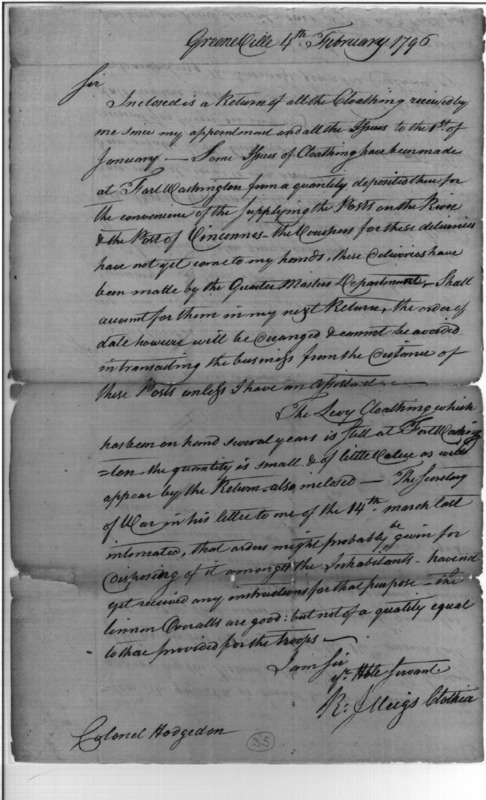 GreeneVille 4th. February 1796
Sir
Inclosed is a Return of all the Cloathing received by
me since my appointment and all the Issues to the 1st. of
January — Some Issues of Cloathing have been made
at Fort Washington from a quantity deposited there for
the convenience of the supplying the Posts on the River
& the Post of Vincennes — the Vouchers for these deliveries
have not yet come to my hands, these deliveries have
been made by the Quarter Masters Department, Shall
account for them in my next Return, the order of
date however will be deranged & cannot be avoided
in transacting the business from the distance of
these Posts unless I have an assistant. —
The Levy Cloathing which
has been on hand several years is still at Fort Washing
=ton, the quantity is small & of little value as will
appear by the Return also inclosed — The Secretary
of War in his letter to me of the 14th. march last
intimated, that orders might probably be given for
disposing of it amongst the Inhabitants — have not
yet received any instructions for that purpose — the
linnen Overalls are good: but not of a quality equal
to those provided for the troops —
I am Sir
yr. Hble Servant
R: J Meigs Clothier
Colonel Hodgedon
35